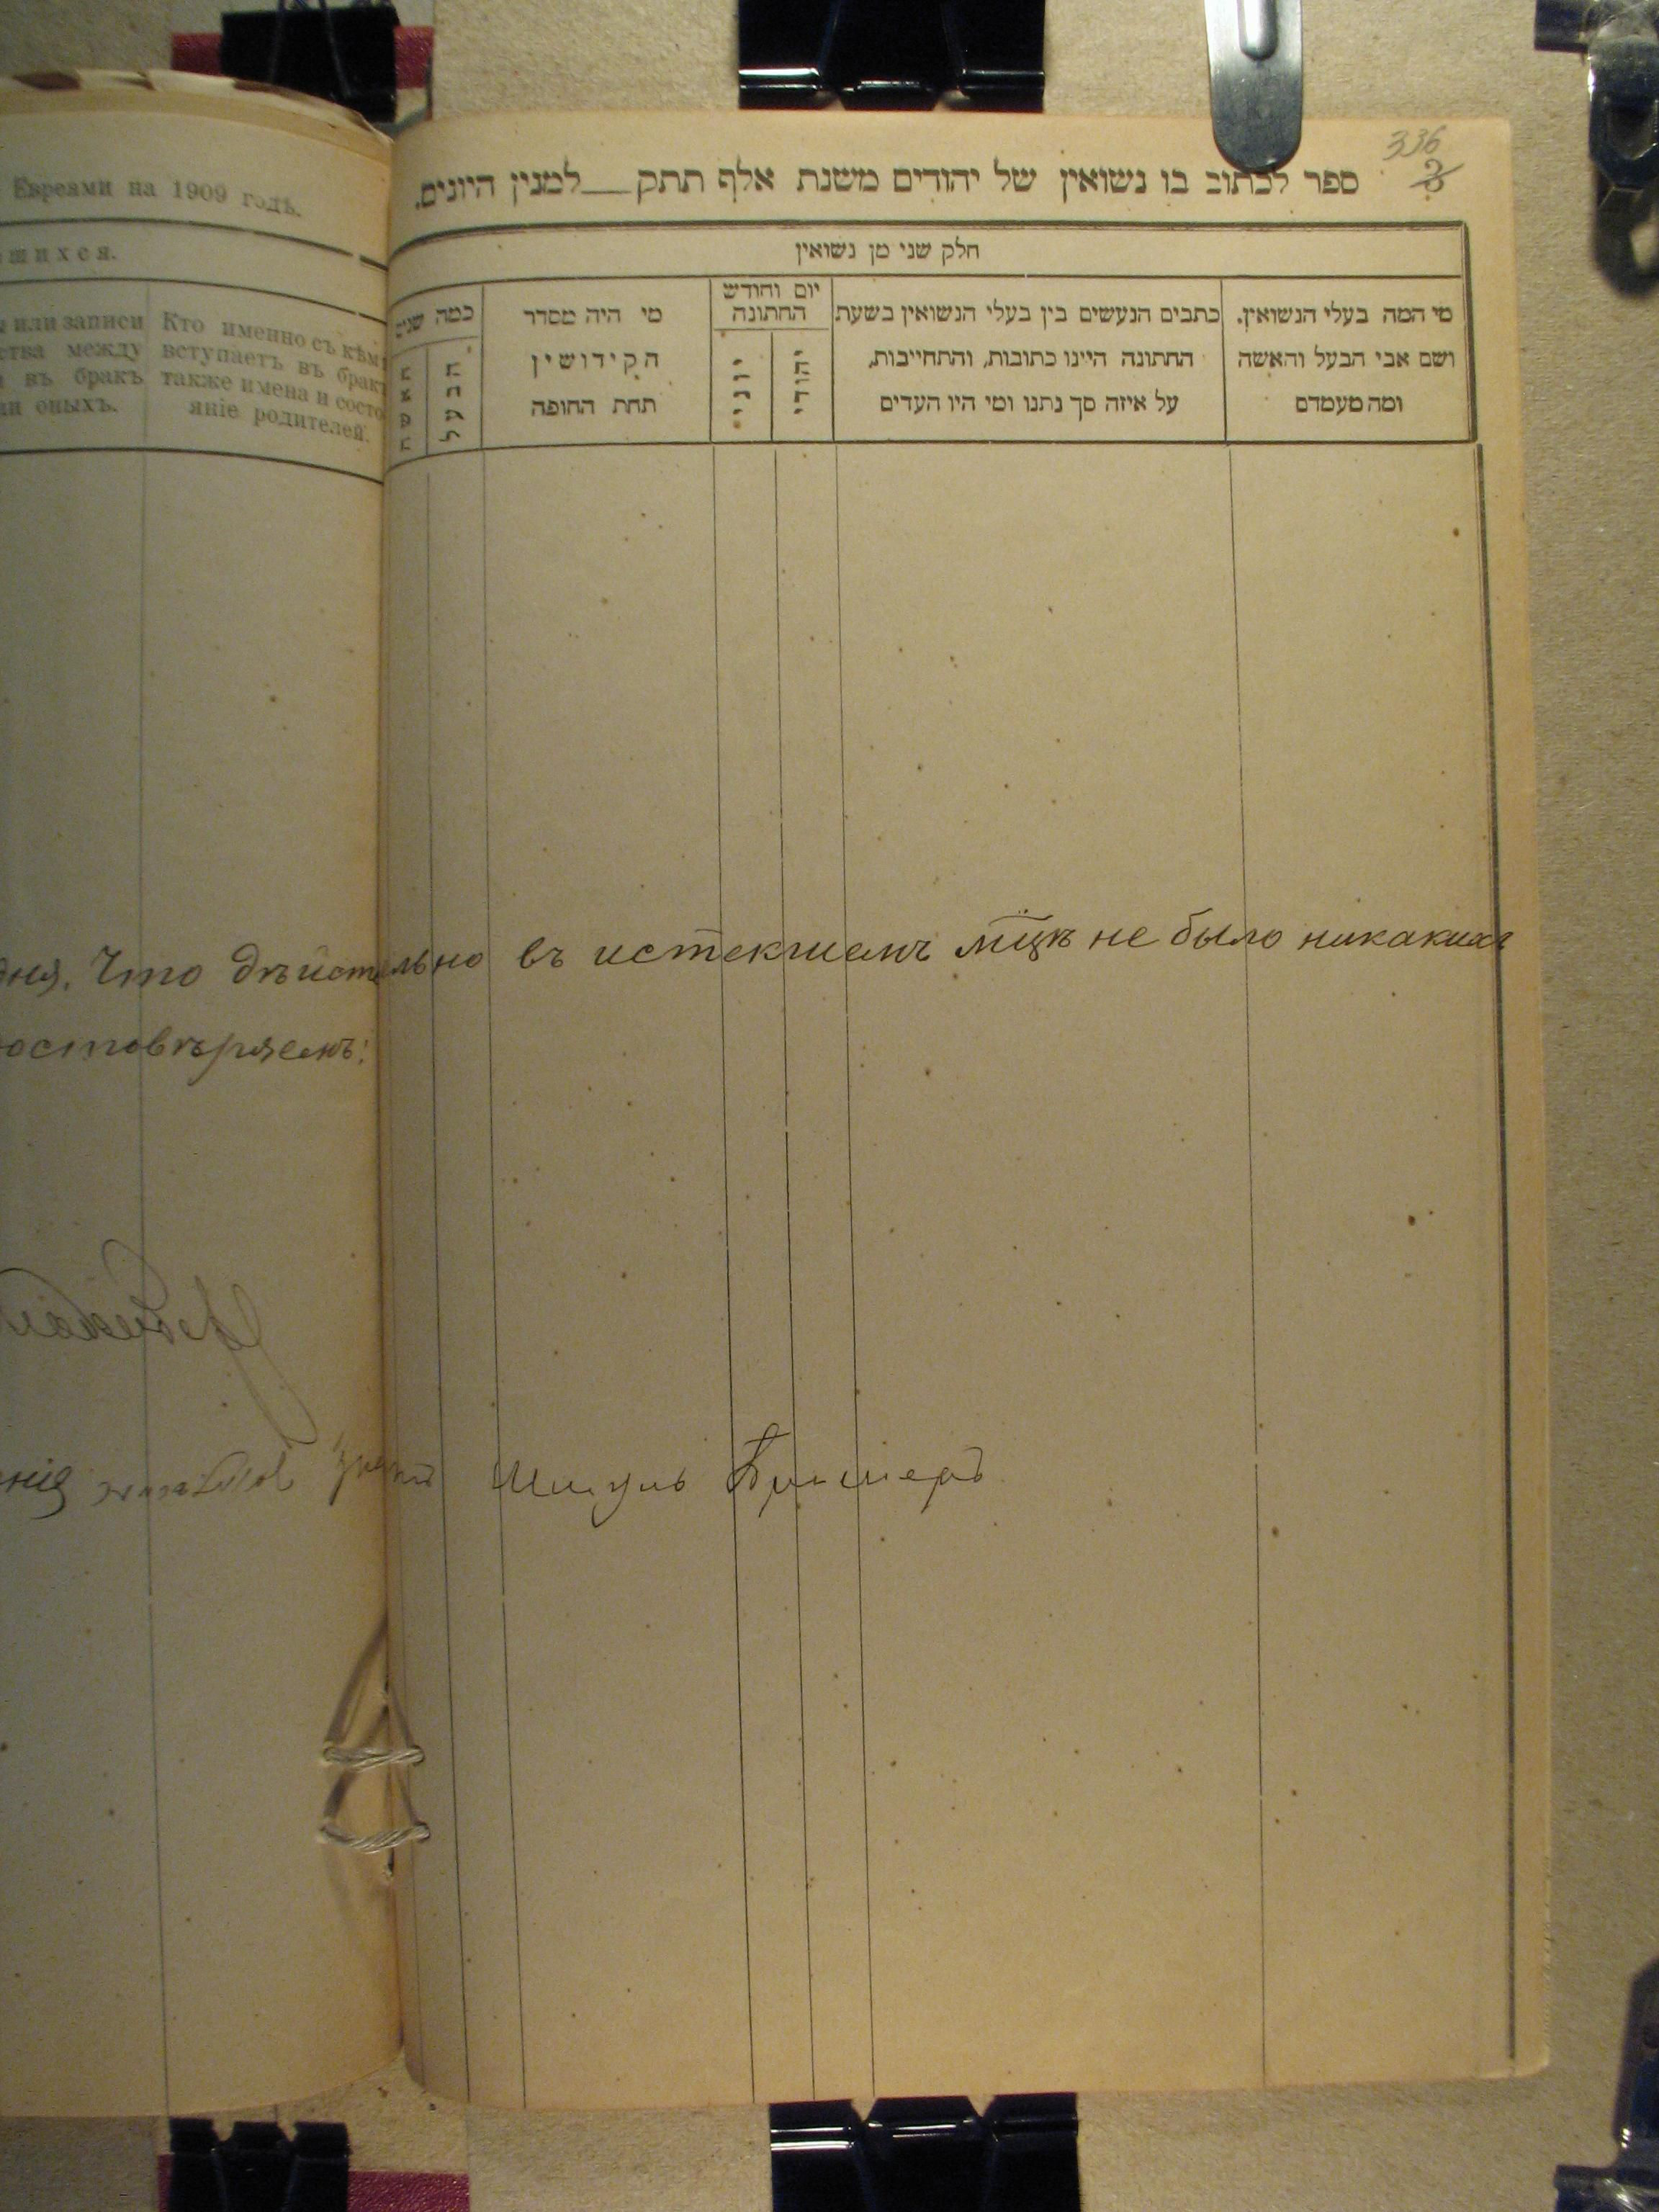 Евреями на 1909 годъ.
шихся.
или записи
ства между
въ бракъ
оныхъ.
Кто именно съ кѣмъ
вступаетъ въ бракъ
также имена и состо
яніе родителей.
336
3
ספר לכתוב בו נשואין של יהודים משנת אלף תתק__למנין היונים.
חלק שני מן נשואין
מי המה בעלי הנשואין.
ושם אבי הבעל והאשה
ומה מעמדם
כתבים הנעשים בין בעלי הנשואין בשעת
החתונה היינו כתובות, והתחייבות,
על איזה סך נתנו ומי היו העדים
יום וחודש
החתונה
יהודי
יוני
מי היה מסדר
הקידושין
תחת החופה
כמה שנים
הבעל
האשה
дня. Что дѣйствельно въ истекшемъ мцѣ не было никакихъ
остовѣряемъ:
Шмуль